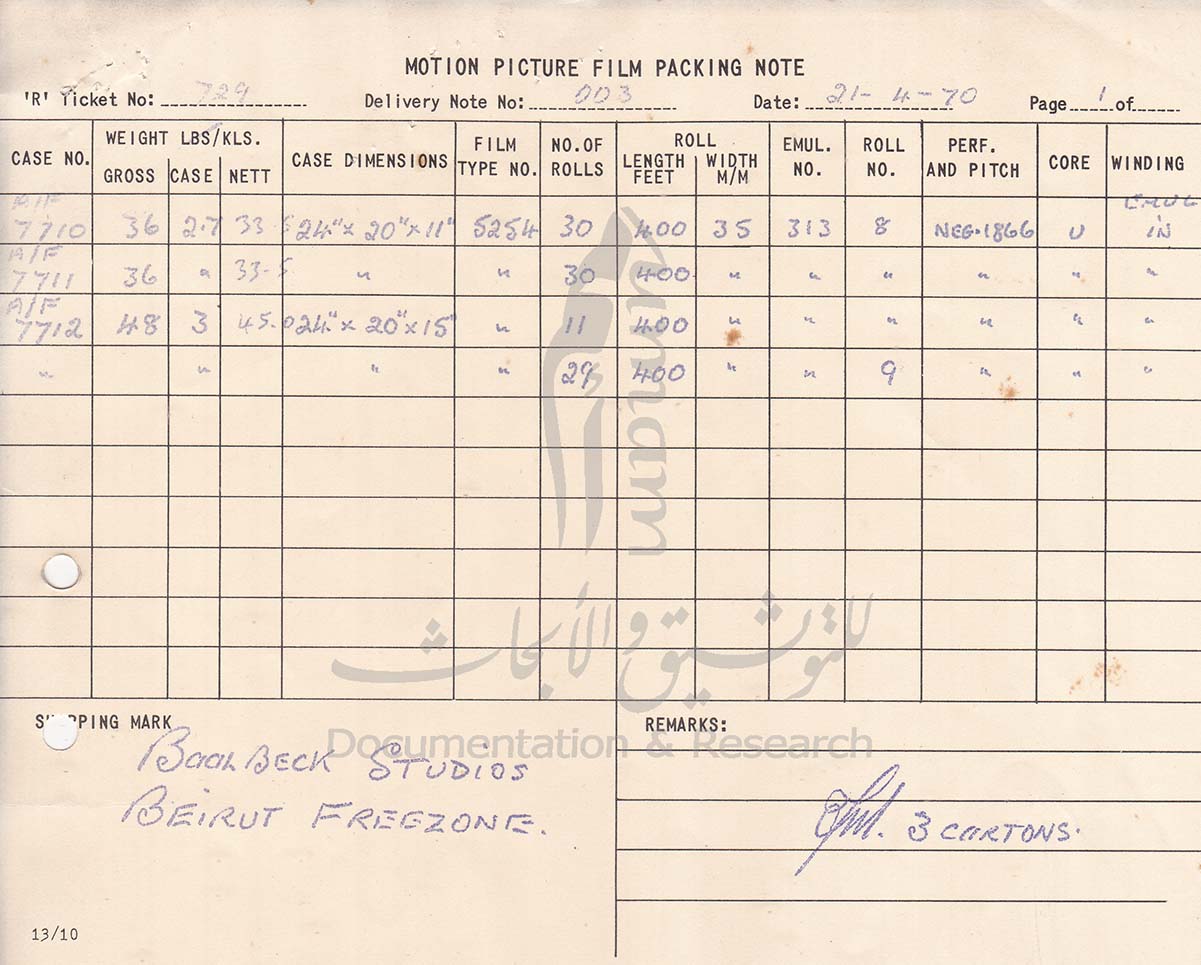 MOTION PICTURE FILM PACKING NOTE
'R' Ticket No: 729 Delivery Note No: 003 Date: 21-4-70 Page 1 of
CASE NO. WEIGHT LBS/KLS. GROSS CASE NETT CASE DIMENSIONS FILM TYPE NO. NO.OF ROLLS ROLL LENGTH FEET WIDTH M/M EMUL. NO. ROLL NO. PERF. AND PITCH CORE WINDING
A/F 7710 36 2.7 33.5 24"x 20"x 11" 5254 30 400 35 313 8 NEG.1866 U EMUL IN
A/F 7711 36 " 33.5 " " 30 400 " " " " " "
A/F 7712 48 3 45.0 24"x 20"x 15" " 11 400 " " " " " "
" " " " 29 400 " " 9 " " "
SHIPPING MARK
BaalBECK STUDIOS
BEIRUT FREEZONE.
REMARKS:
3 CARTONS.
13/10
umam
للتوثيق و الأبحاث
Documentation & Research